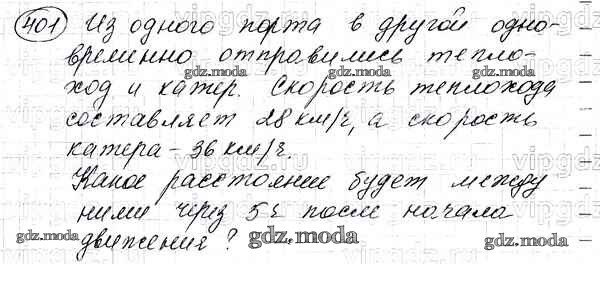 401 Из одного порта в другой одно-
временно отправились тепло-
ход и катер. Скорость теплохода
составляет 28 км/ч, а скорость
катера - 36 км/ч.
Какое расстояние будет между
ними через 5 ч после начала
движения?
gdz.moda